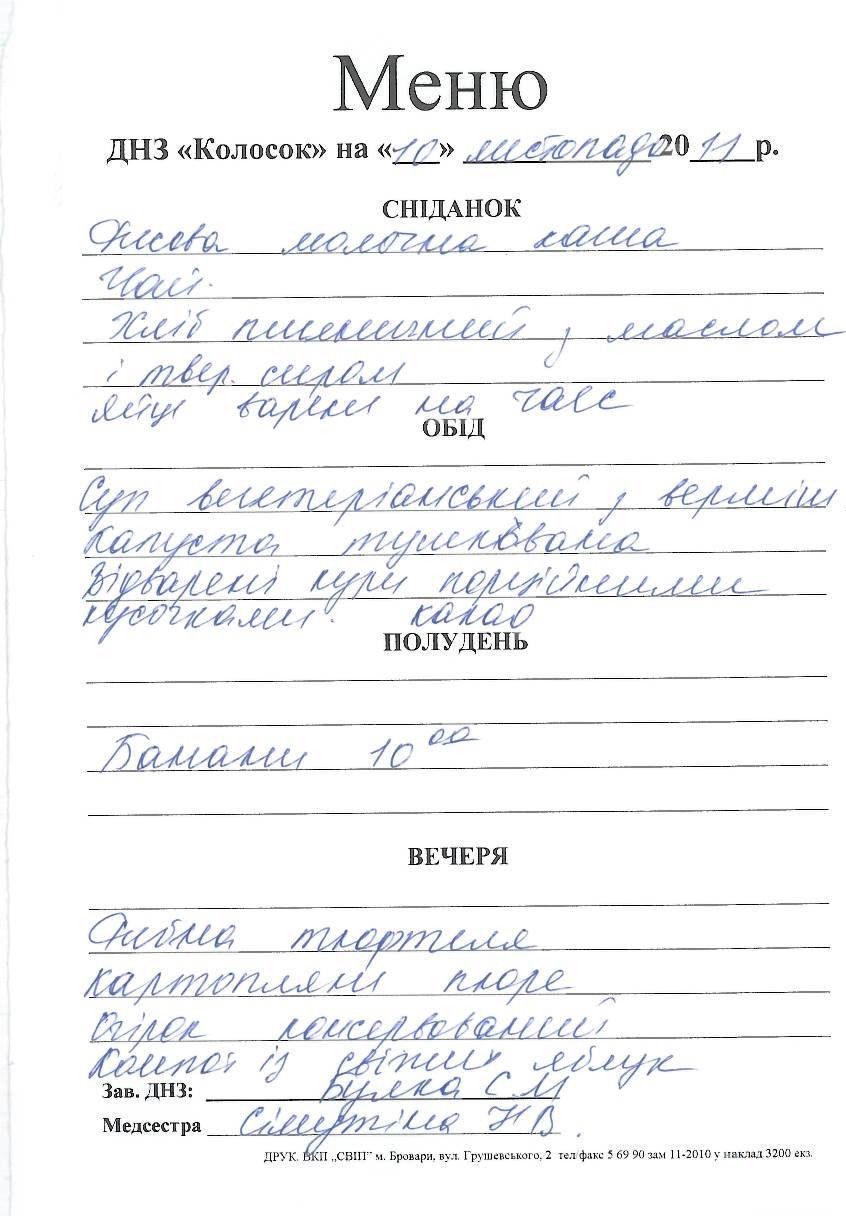 Меню
ДНЗ «Колосок» на «10» листопада 2011 р.
СНІДАНОК
Рисова молочна каша
Чай.
Хліб пшеничний з маслом
і твер. сиром
яйця варени на час
ОБІД
Суп вегетеріанський з верміш
Капуста тушкована
Відварені кури порційними
кусочками. какао
ПОЛУДЕНЬ
Банани 10 00
ВЕЧЕРЯ
Рибна тюфтеля
Картопляни пюре
Огірок консервований
Компот із свіжих яблук
Зав. ДНЗ: Булка С М
Медсестра Сімутіна Н В.
ДРУК. ВКП „СВІП” м. Бровари, вул. Грушевського, 2 тел/факс 5 69 90 зам 11-2010 у наклад 3200 екз.